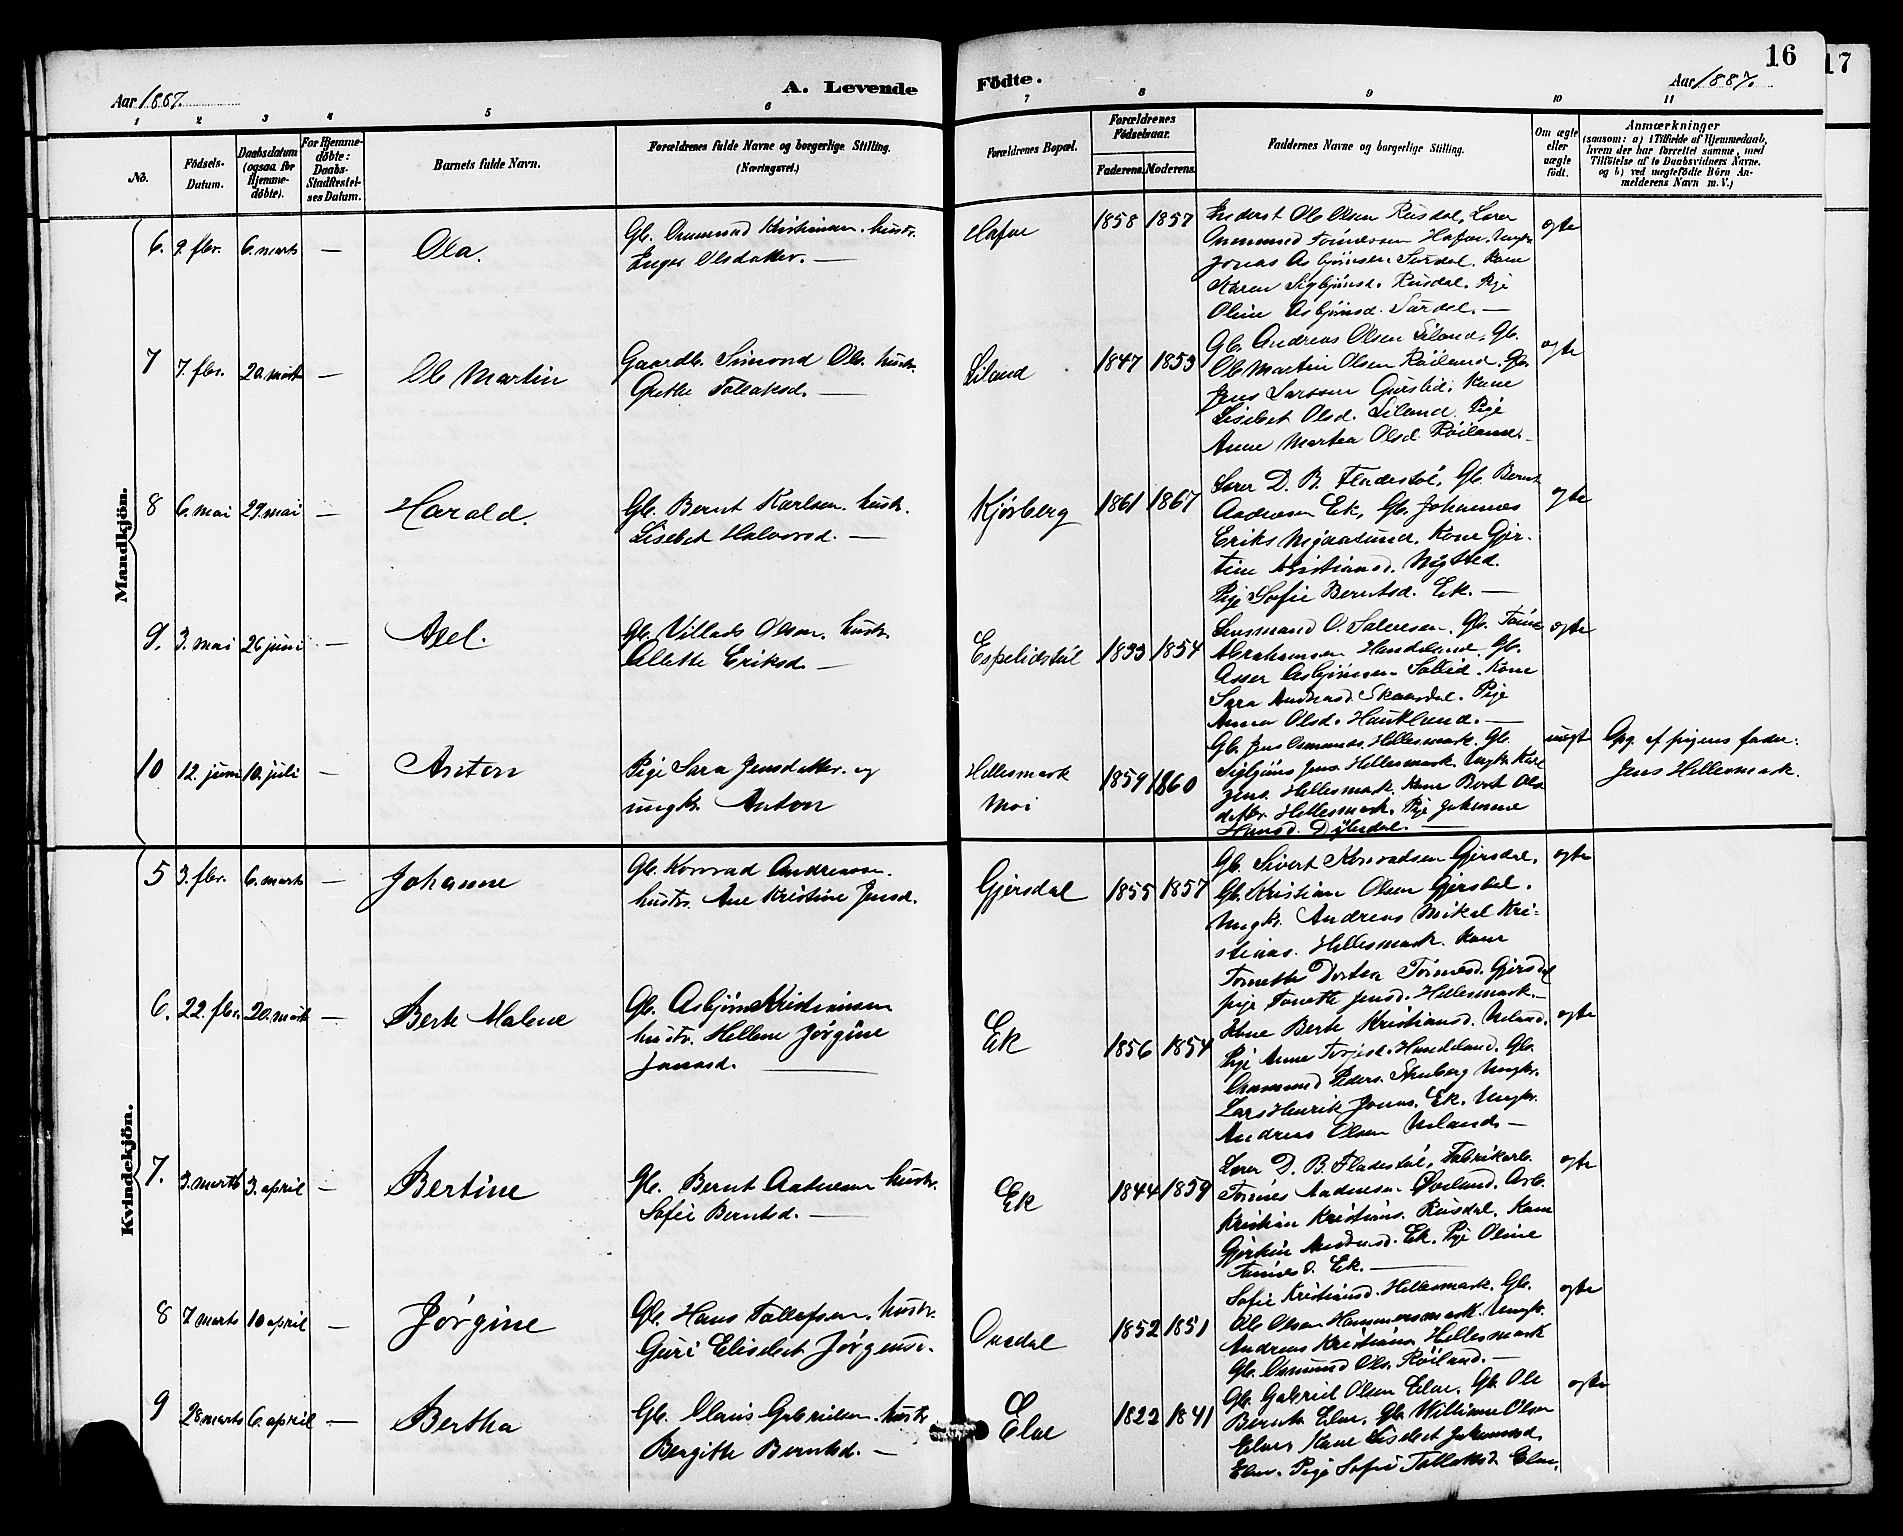 16
17
Aar 1887.
A. Levende
Födte.
Aar 1887.
1 2 3 4 5 6 7 8 9 10 11
No.
Födsels-
Datum.
Daabsdatum
(ogsaa for
Hjemme-
döbte).
For Hjemme-
döbte:
Daabs-
Stadfæstel-
ses Datum.
Barnets fulde Navn.
Forældrenes fulde Navne og borgerlige Stilling.
(Næringsvei.)
Forældrenes Bopæl.
Forældrenes
Födselsaar.
Faderens. Moderens.
Faddernes Navne og borgerlige Stilling.
Om ægte
eller
uægte
födt.
Anmærkninger
(saasom: a) i Tilfælde af Hjemmedaab,
hvem der har forrettet samme, med
Tilföielse af to Daabsvidners Navne.
og b) ved uægtefödte Börn An-
melderens Navn m. V.)
Mandkjön.
6. 9. fbr. 6. marts — Ola.
Gb. Aamund Kristiansen. hustr.
Inger Olsdatter. —
Hafne 1858 1857
Enderst Ole Olsen Rusdal, Lærer
Aamund Tönnessen Hafne, Ungkr
Jonas Asbjörnsen Surdal. Kone
Karen Sigbjörnsd. Rusdal. Pige
Oline Asbjörnsd. Surdal. —
ægte
7 7. fbr. 20. marts — Ole Martin
Gaardb. Simond Ols. hustr.
Grethe Tollaksd. —
Liland 1847 1853
Gb. Andreas Olsen Liland, Gb.
Ole Martin Olsen Röiland, Gb.
Jens Larssen Gjersdal. Kone
Lisebet Olsd. Liland Pige
Anne Martea Olsd. Röiland. —
ægte
8 6. mai 29. mai — Harald.
Gb. Bernt Karlsen. hustr.
Lisebet Halvorsd. —
Kjörberg 1861 1867
Lærer D. B. Fladestöl, Gb. Bernt
Andreasen Ek, Gb. Johannes
Eriks. Mydasund, Kone Gjer-
tine Kristiansd. Mysted.
Pige Sofie Berntsd. Ek. —
ægte
9. 3. mai 26 juni — Axel.
Gb. Villads Olsen. hustr.
Alette Eriksd. —
Espelidstöl 1833 1854
Lensmand O. Salvesen. Gb. Tönnes
Abrahamsen Handeland. Gb.
Asser Asbjörnsen Sollid. Kone
Sara Andreasd. Skaasdal. Pige
Anna Olsd. Haukland. —
ægte
10 12. juni 10. juli — Anton
Pige Sara Jensdatter. og
ungk. Anton
Hellesmark
Moi 1859 1860
Gb. Jens Osmunds. Hellesmark. Gb.
Sigbjörn Jens. Hellesmark. Ungkr. Karl
Jens. Hellesmark. Kone Berit Ols
datter. Hellesmark. Pige Johanne
Hansd. Dybedal. —
uægt
Opg. af pigens fader.
Jens Hellesmark.
Kvindekjön.
5 3. fbr. 6. marts — Johanne
Gb. Konrad Andreassen.
hustr. Ane Kristine Jensd.
Gjersdal 1855 1857
Gb. Sivert Konradsen Gjersdal,
Gb. Kristian Olsen Gjersdal.
Ungkr. Andreas Mikal Kri-
stians. Hellesmark. Kone
Tonette Dortea Tönnesd. Gjersdal
pige Tonette Jensd. Hellesmark. —
ægte
6. 22. fbr. 20. marts — Berte Malene
Gb. Asbjörn Kristiansen
hustr. Hellene Jörgine
Jonasd. —
Ek 1856 1854
Kone Berte Kristiansd. Ueland.
Pige Anne Torjusd. Handeland. Gb.
Aamund Peders. Skuberg Ungkr.
Lars Henrik Jonas. Ek. Ungkr.
Andreas Olsen Ueland —
ægte
7. 3. marts 3. april — Bertine
Gb. Bernt Andreasen hustr.
Sofie Berntsd. —
Ek 1844 1859
Lærer D. B. Fladestöl, Fabrikarb.
Tönnes Andreasen Öveland. Arb.
Kristian Kristians. Rusdal. Kone
Gjertine Andreasd. Ek. Pige Oline
Tönnesd. Ek. —
ægte
8 7 marts 10 april — Jörgine
Gb. Hans Tollefsen. hustr.
Guri Elisebet Jörgensd.
Ousdal 1852 1851
Sofie Kristiansd. Hellesmark. Gb.
Ole Olsen Hammersmark. Ungkr.
Andreas Kristians Hellesmark
Gb. Osmund Ols. Röiland. —
ægte
9 28 marts 6. april — Bertha
Gb. Claus Gabrielsen. hustr
Bergitte Berntsd. —
Elve 1822 1841
Gb. Gabriel Olsen Elve. Gb. Ole
Bernts. Elve, Gb. William Olsen
Elve. Kone Lisebet Johannesd.
Elve. Pige Sofie Tollaksd. Elve.
ægte